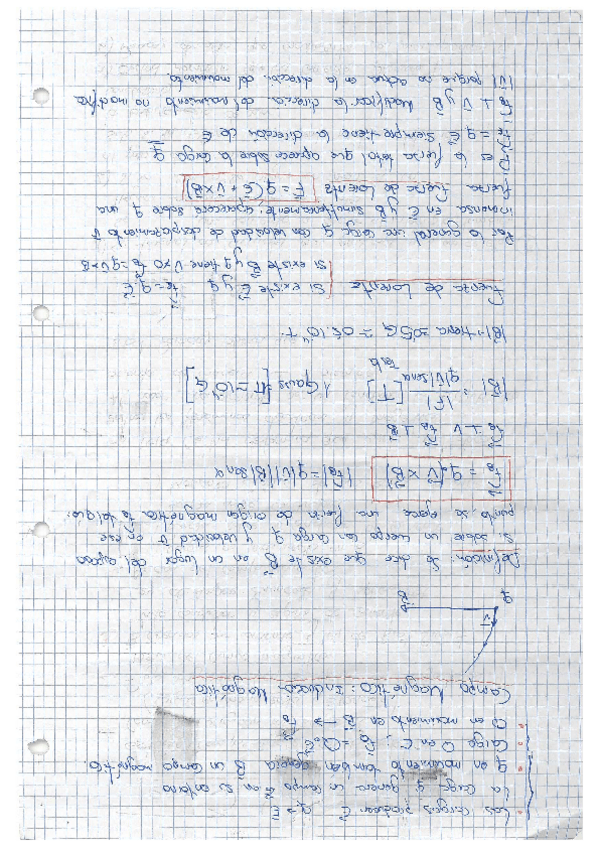 Las cargas producen E q → E
La carga q genera un campo E en su entorno
q en movimiento también genera B un campo magnético.
Carga Q en E, Fe = Q·E
Q en movimiento en B → FB
Campo Magnético: Inducción Magnética
q V B
Definición: Se dice que existe B en un lugar del espacio
si sobre un cuerpo con carga q y velocidad V en ese
punto, se ejerce una fuerza de origen magnético fB tal que:
fB = q(V × B) |fB| = q|V||B| sen α
fB ⊥ V fB ⊥ B
|B| = |F| / q|V| sen α [T] Tesla 1 Gaus [1T = 10⁴G]
|B| Tierra ≈ 0'5G = 0'5·10⁻⁴T
Fuerza de Lorentz Si existe E y q fe = q·E
Si existe B y q tiene V≠0 fB = qV×B
Por lo general una carga q con velocidad de desplazamiento V
inmersa en E y B simultáneamente, aparecerá sobre q una
fuerza fuerza de Lorentz F = q(E + V×B)
F es la fuerza total que aparece sobre la carga q
fe = qE siempre tiene la dirección de E
fB ⊥ V y B Modifica la dirección del movimiento no modifica
|V| porque no actúa en la dirección del movimiento.